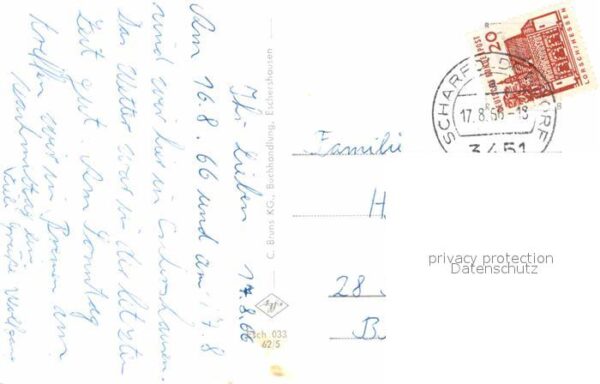 Ihr Lieben 17.8.66
Am 16.8.66 und am 17.8
sind wir hier in Eschershausen.
Das Wetter war in der letzten
Zeit gut. Am Sonntag
treffen wir in Bremen am
Nachmittag ein
Viele Grüße Wolfgang
C. Bruns KG., Buchhandlung, Eschershausen
Esch. 033
62/5
Familie
H
28
B
20
DEUTSCHE BUNDESPOST
LORSCH/HESSEN
17.8.66-18
3451
privacy protection
Datenschutz